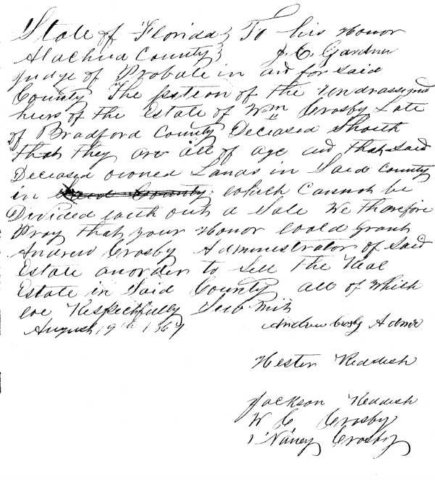 State of Florida } To his Honor
Alachua County } J. C. Gardner
Judge of Probate in and for said
County The petion of the undrassigned
heirs of the Estate of Wm Crosby Late
of Bradford County Deceased Shoeth
that they are all of age and that said
Deceased owned Lands in Said County
in which Cannot be
Devided with out a Sale We therefore
Pray that your Honor would Grant
Andrew Crosby Administrator of Said
Estate an order to Sell The Real
Estate in Said County all of which
we Respectfully Submit
August 19th 1869 Andrew Crosby Admr
Hester Reddish
Jackson Reddish
W C Crosby
Nancy Crosby